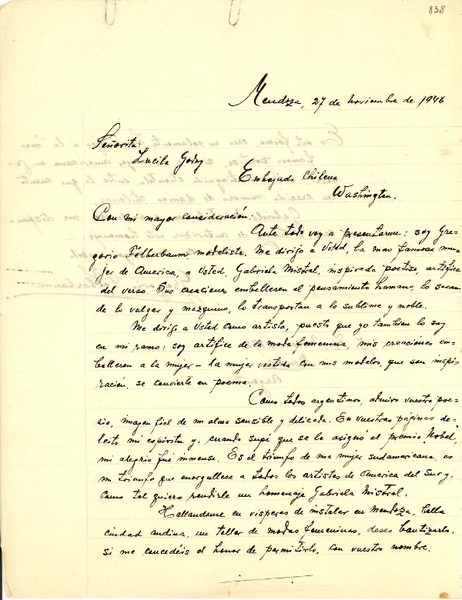 838
Mendoza, 27 de noviembre de 1946
Señorita:
Lucila Godoy
Embajada Chilena
Washington.
Con mi mayor consideración.
Ante todo voy a presentarme: soy Gre-
gorio Felberbaum, modeliste. Me dirijo a Usted, la mas famosa mu-
jer de America, a Usted, Gabriela Mistral, inspirada poetisa, artífice
del verso. Sus creaciones embellecen el pensamiento humano, lo sacan
de lo vulgar y mezquino, lo transportan a lo sublime y noble.
Me dirijo a Usted como artista, puesto que yo tambien lo soy
en mi ramo: soy artífice de la moda femenina, mis creaciones em-
bellecen a la mujer - la mujer vestida con mis modelos, que son inspi-
ración, se convierte en poema.
Como todos argentinos, admiro vuestra poe-
sia, imagen fiel de mi alma sensible y delicada. En vuestras páginas de-
leito mi espíritu y, cuando supé que se la asigno el premio Nobel,
mi alegria fué inmensa. Es el triunfo de una mujer sudamericana, es
un triunfo que enorgullece a todos los artistas de America del Sur y,
como tal quiero rendirle un homenaje Gabriela Mistral.
Hallandome en visperas de instalar en Mendoza, bella
ciudad andina, un taller de modas femeninas, deseo bautizarlo,
si me concedéis el honor de permitirlo, con vuestro nombre.